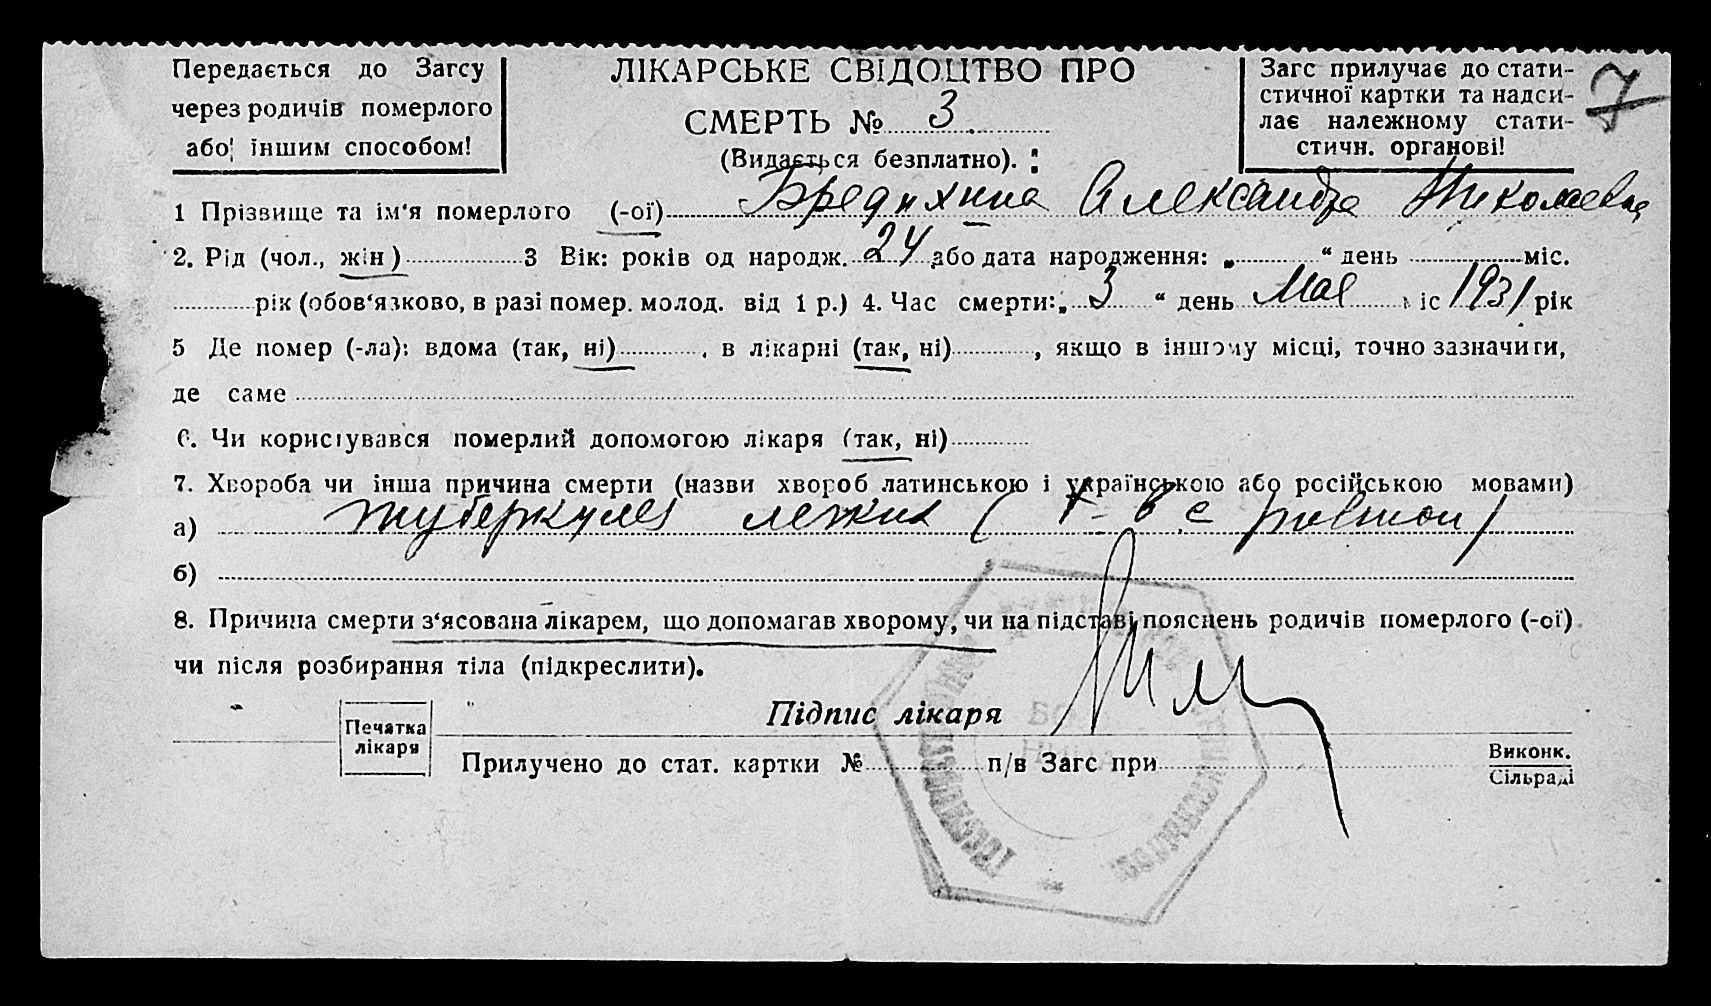 Передається до Загсу
через родичів померлого
або іншим способом!
ЛІКАРСЬКЕ СВІДОЦТВО ПРО
СМЕРТЬ № 3
(Видається безплатно).
Загс прилучає до стати-
стичної картки та надси-
лає належному стати-
стичн. органові!
7
1 Прізвище та ім'я померлого (-ої) Бредихина Александра Николаевна
2. Рід (чол., жін) 3 Вік: років од народж. 24 або дата народження: „ “ день міс.
рік (обов'язково, в разі помер. молод. від 1 р.) 4. Час смерти: „ 3 “ день Мая міс 1931 рік
5 Де помер (-ла): вдома (так, ні) , в лікарні (так, ні) , якщо в іншому місці, точно зазначити,
де саме
6. Чи користувався померлий допомогою лікаря (так, ні)
7. Хвороба чи інша причина смерти (назви хвороб латинською і українською або російською мовами)
а) туберкулез легких
б)
8. Причина смерти з'ясована лікарем, що допомагав хворому, чи на підставі пояснень родичів померлого (-ої)
чи після розбирання тіла (підкреслити).
Печатка
лікаря
Підпис лікаря
Прилучено до стат. картки № п/в Загс при
Виконк.
Сільраді